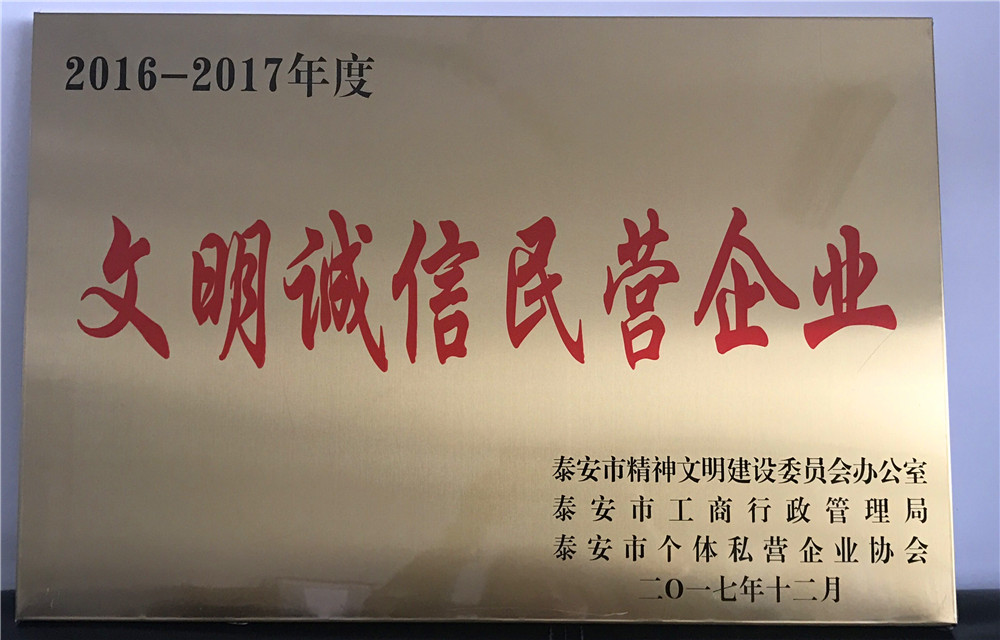 2016-2017年度
文明诚信民营企业
泰安市精神文明建设委员会办公室
泰安市工商行政管理局
泰安市个体私营企业协会
二〇一七年十二月